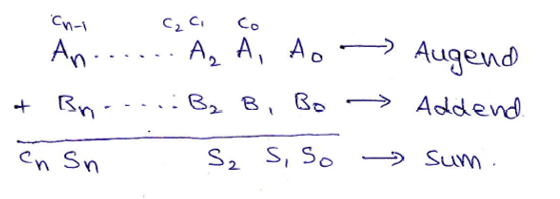 Cn-1 C2 C1 C0
An ...... A2 A1 A0 → Augend
+ Bn ..... B2 B1 B0 → Addend
Cn Sn S2 S1 S0 → Sum.